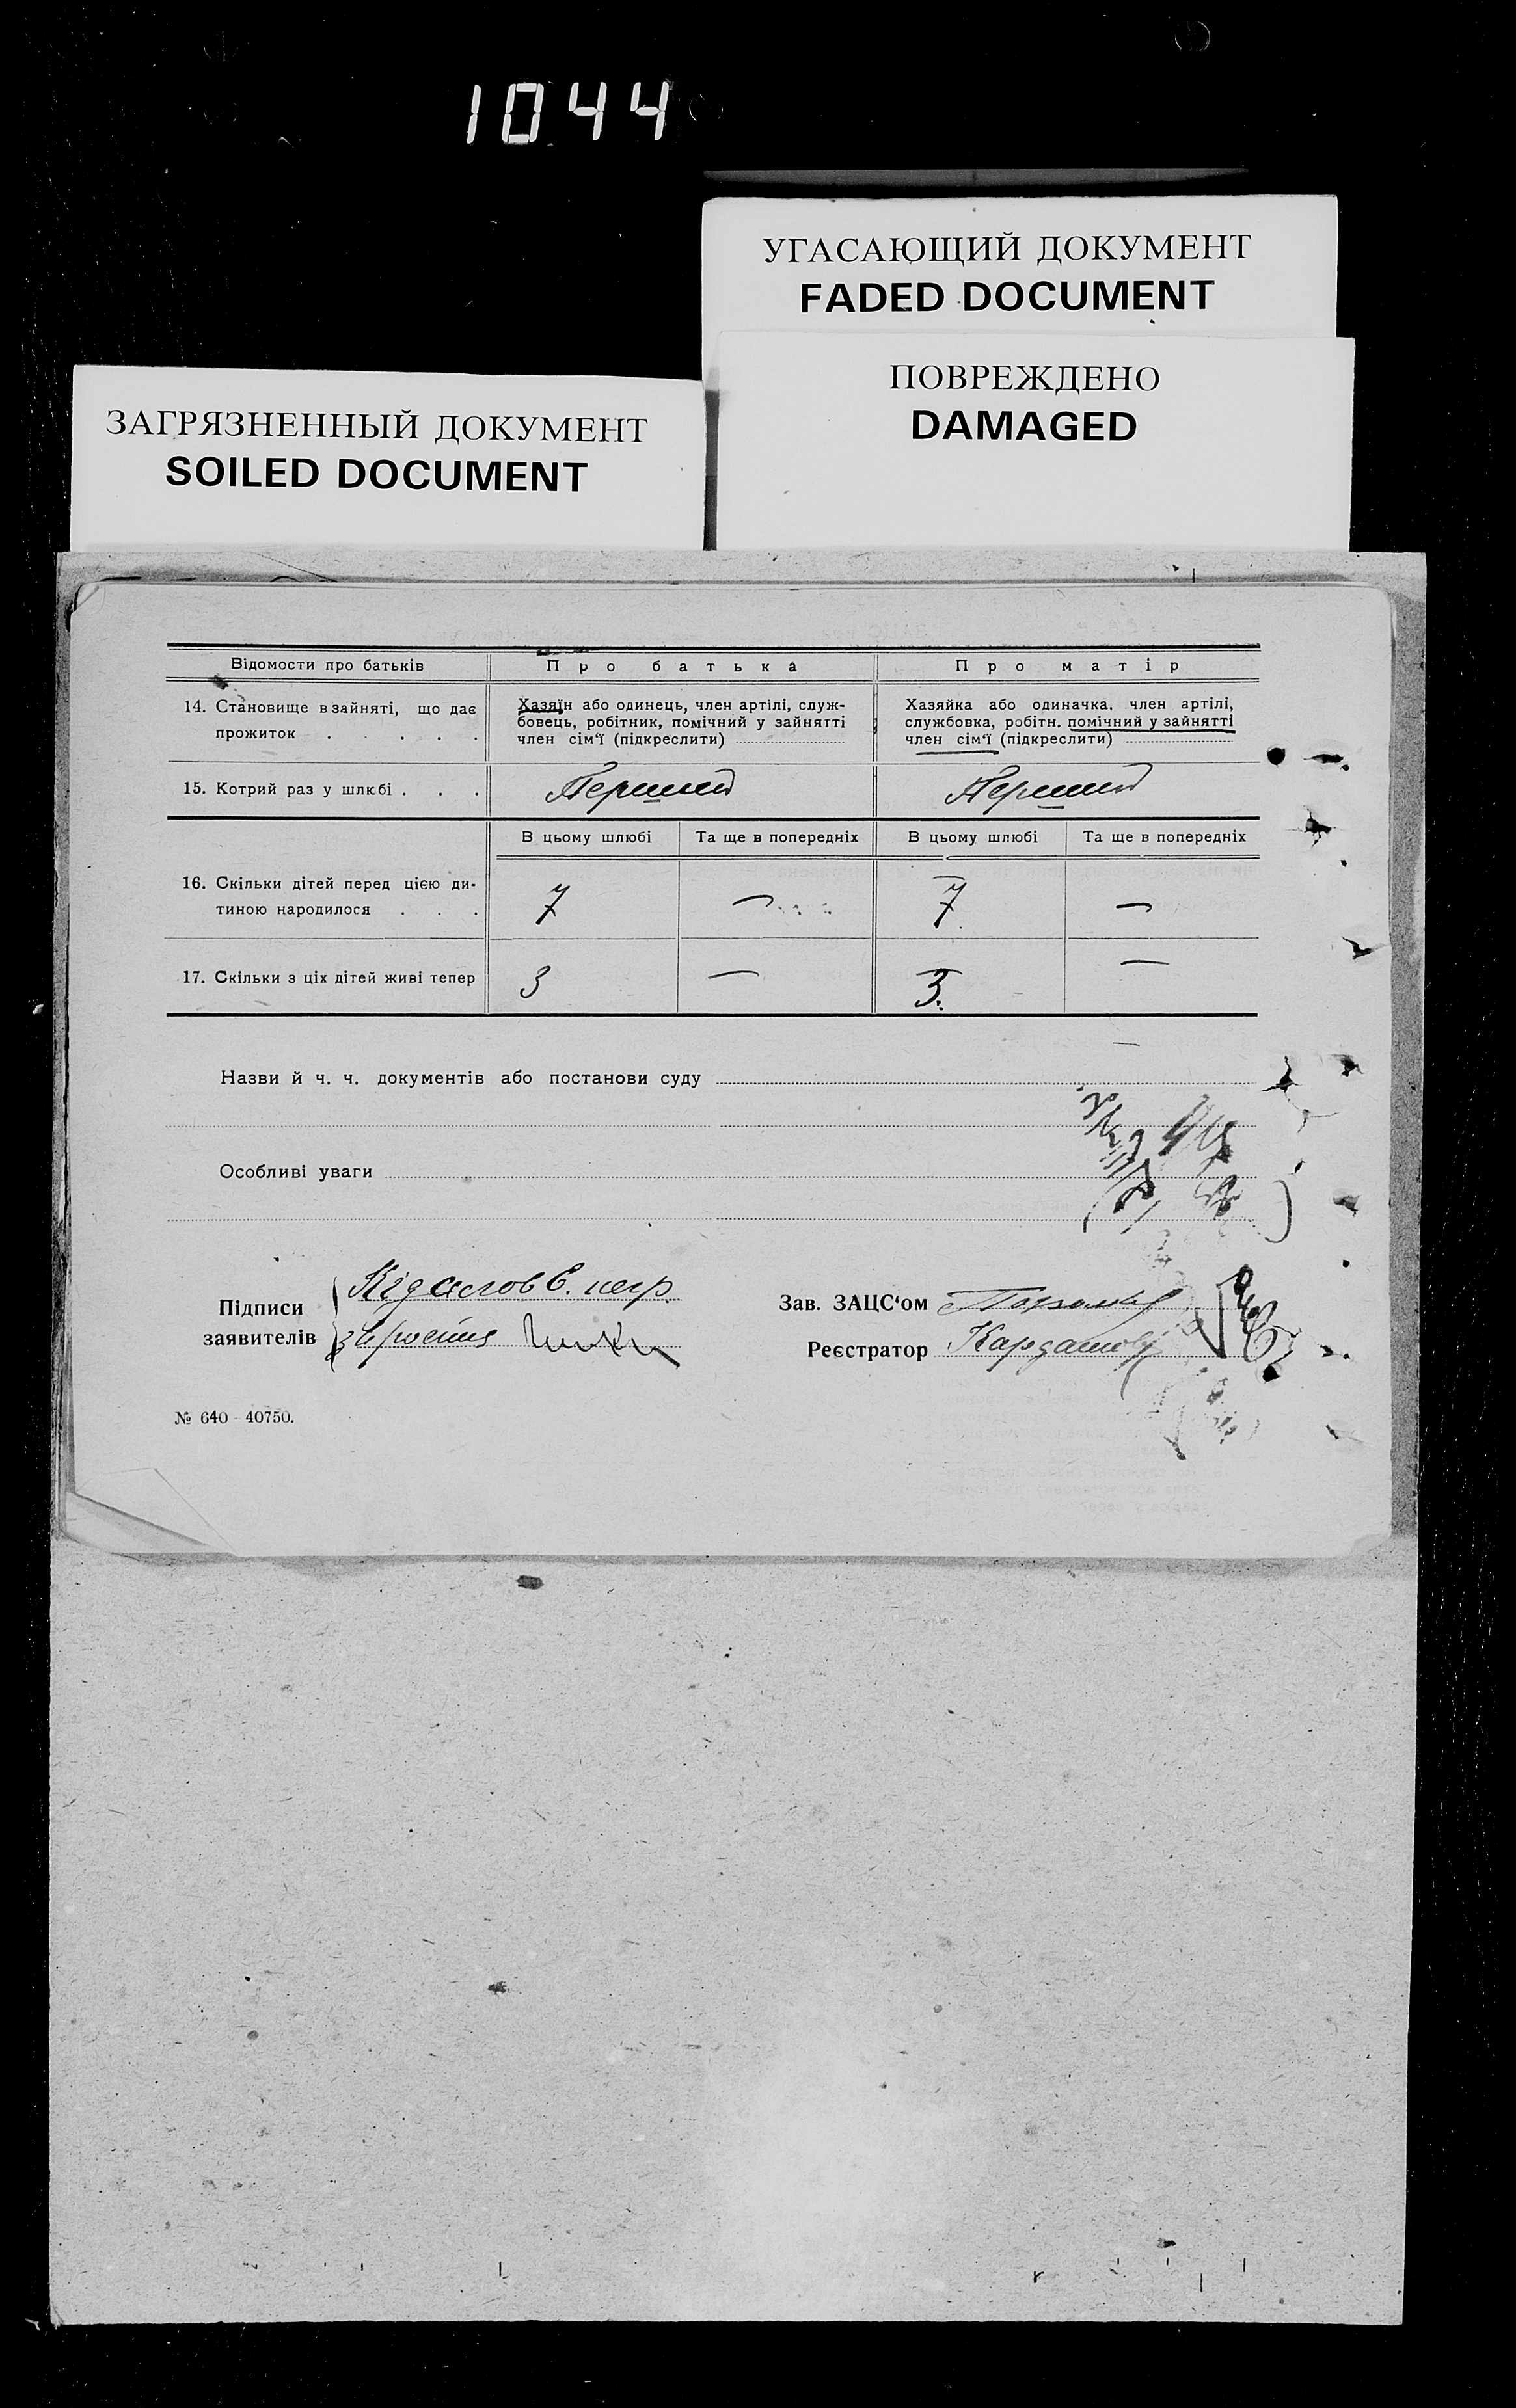 1044
УГАСАЮЩИЙ ДОКУМЕНТ
FADED DOCUMENT
ПОВРЕЖДЕНО
DAMAGED
ЗАГРЯЗНЕННЫЙ ДОКУМЕНТ
SOILED DOCUMENT
Відомости про батьків Про батька Про матір
14. Становище в зайняті, що дає прожиток . . . . .
Хазяїн або одинець, член артілі, служ-
бовець, робітник, помічний у зайнятті
член сім'ї (підкреслити)
Хазяйка або одиначка, член артілі,
службовка, робітн. помічний у зайнятті
член сім'ї (підкреслити)
15. Котрий раз у шлюбі . . . Перший Перший
В цьому шлюбі Та ще в попередніх В цьому шлюбі Та ще в попередніх
16. Скільки дітей перед цією ди-
тиною народилося . . . 7 — 7 —
17. Скільки з ціх дітей живі тепер 3 — 3. —
Назви й ч. ч. документів або постанови суду
Особливі уваги
Підписи
заявителів
Зав. ЗАЦС'ом
Реєстратор
№ 640 - 40750.